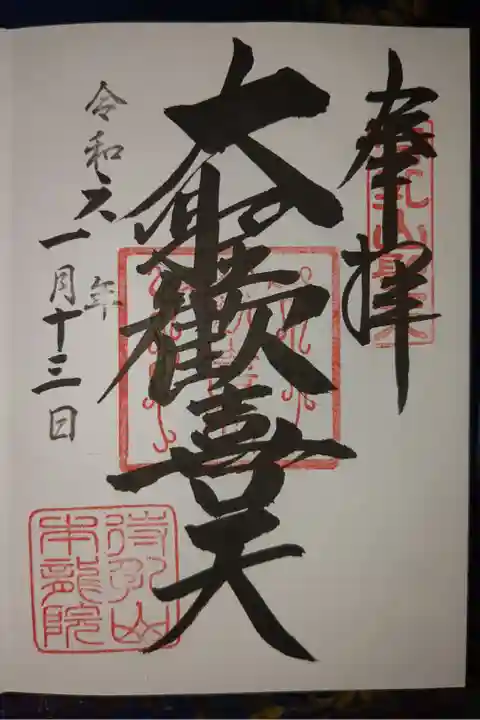 奉拝
大聖歓喜天
令和六年
一月十三日
待乳山
本龍院